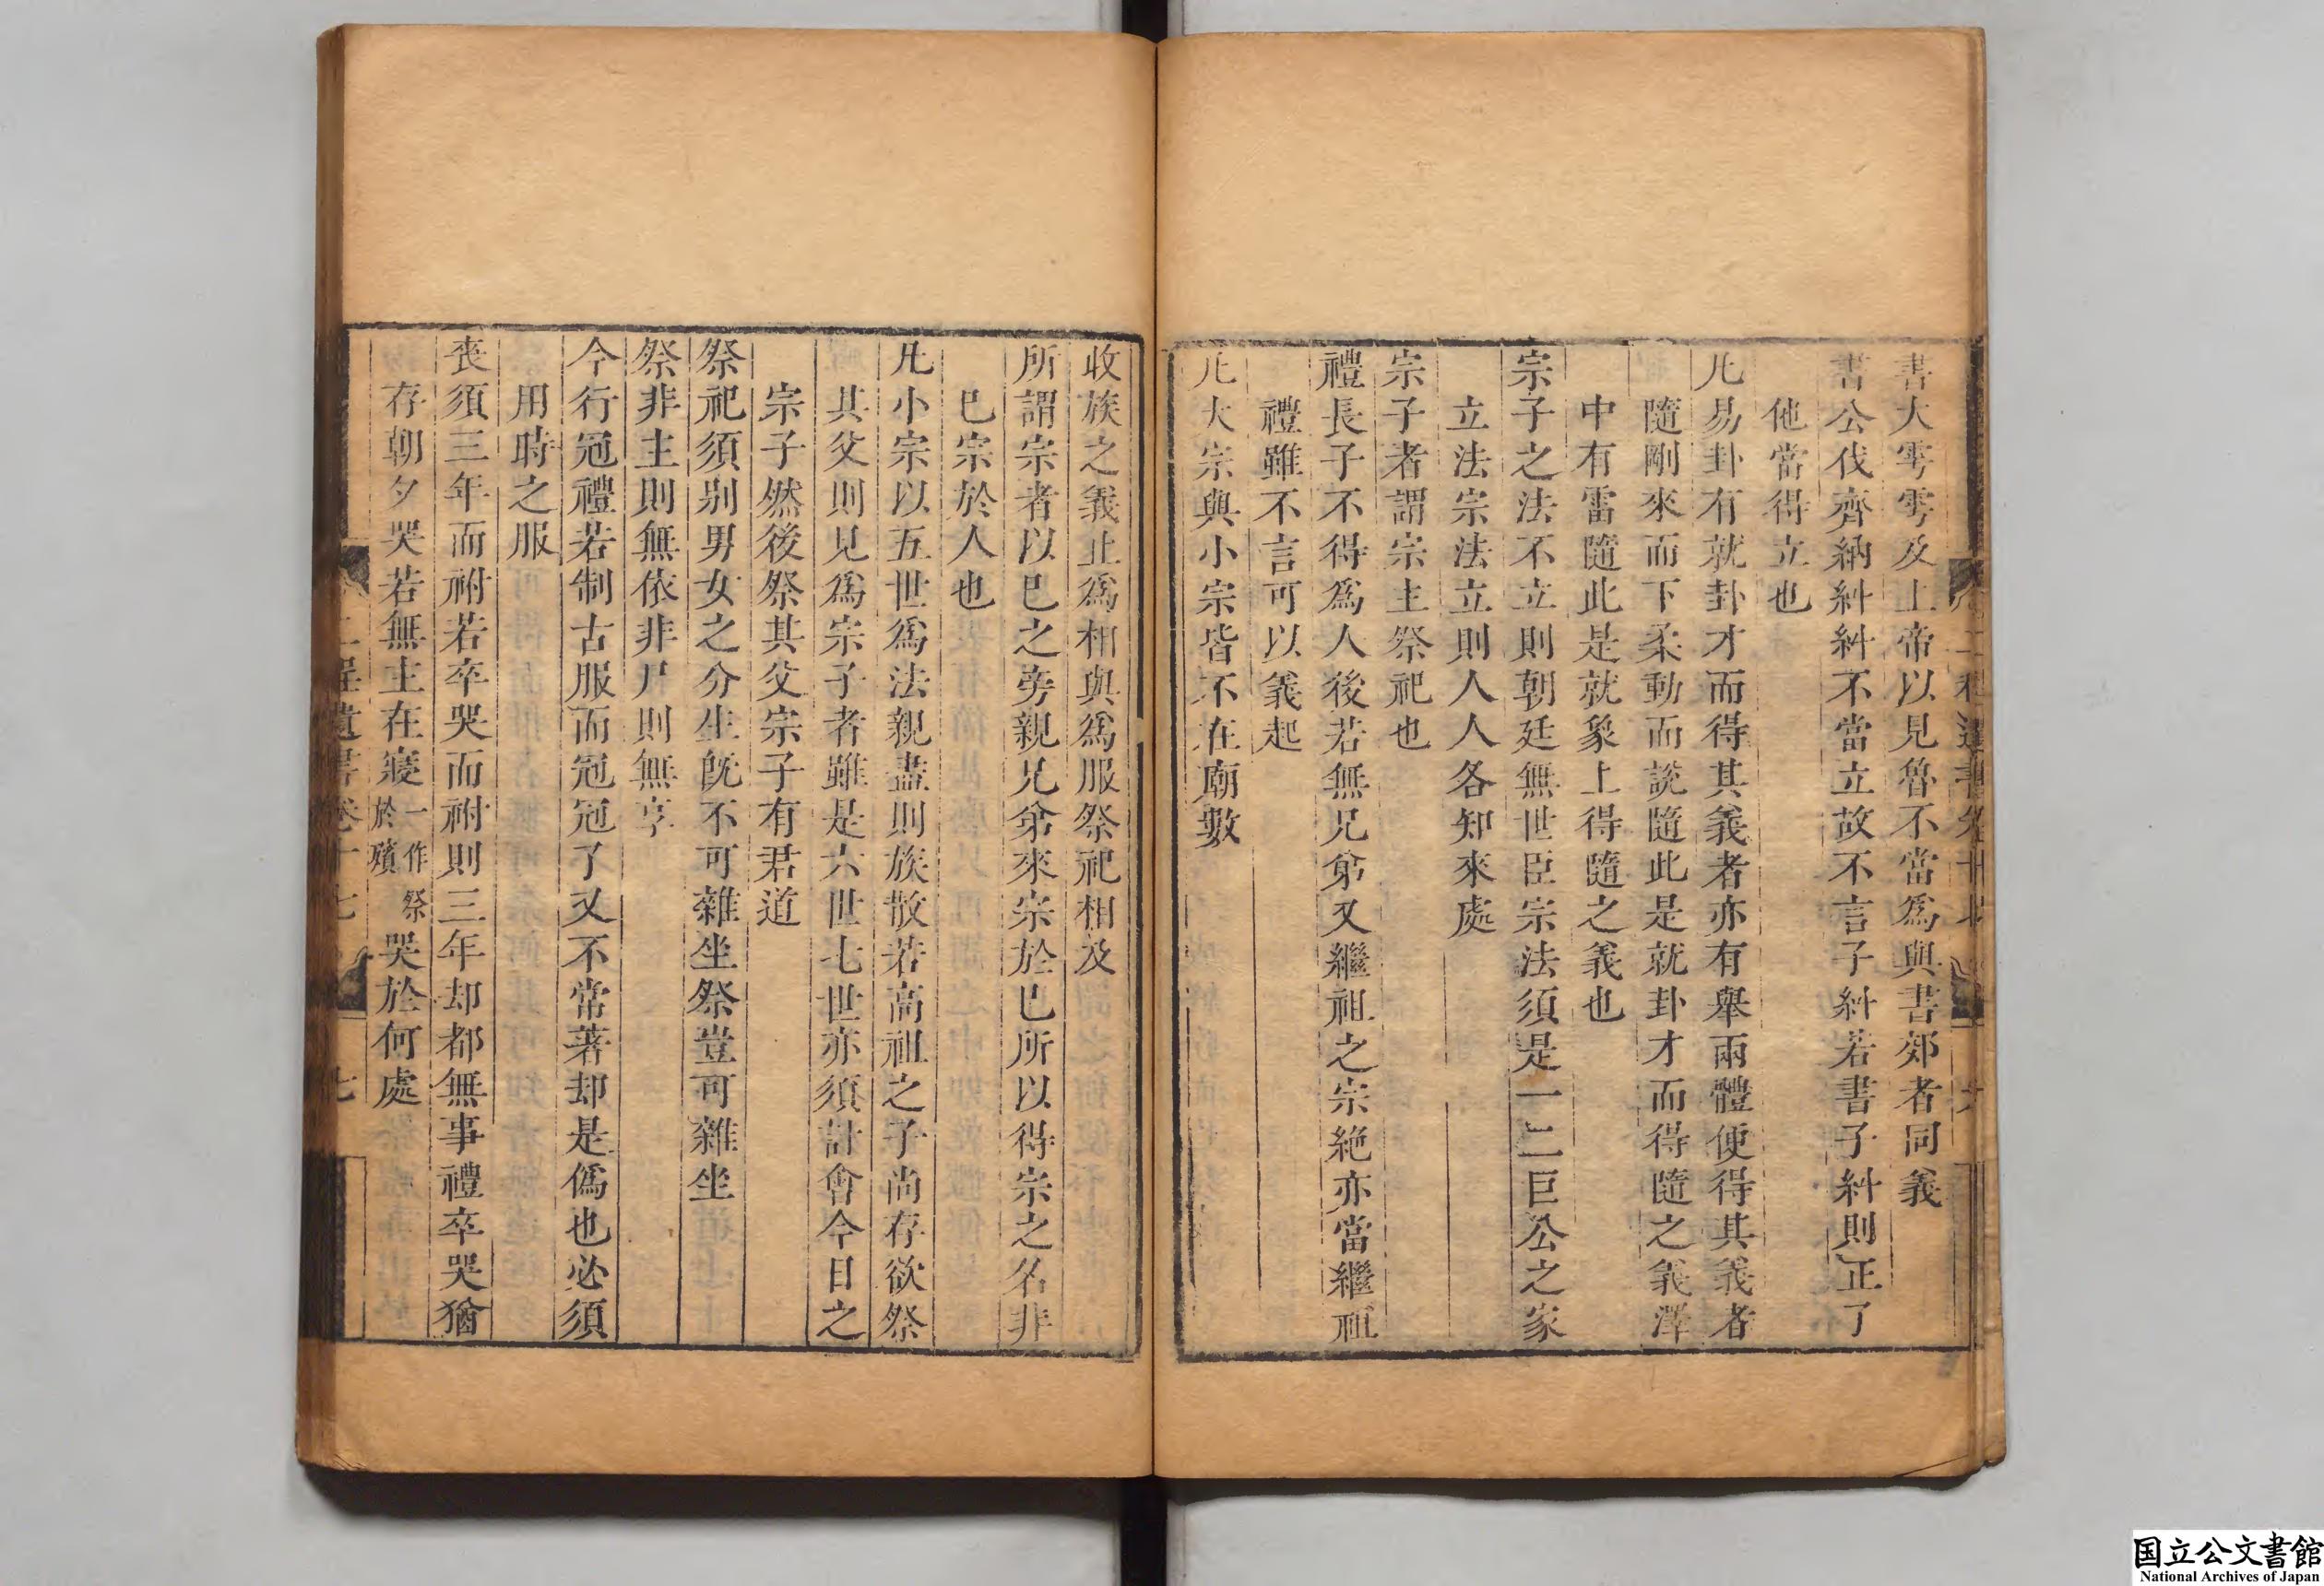 書大雩雩及上帝以見魯不當爲與書郊者同義
書公伐齊納糾糾不當立故不言子糾若書子糾則正了
他當得立也
凡易卦有就卦才而得其義者亦有舉兩體便得其義者
隨剛來而下柔動而說隨此是就卦才而得隨之義澤
中有雷隨此是就象上得隨之義也
宗子之法不立則朝廷無世臣宗法須是一二巨公之家
立法宗法立則人人各知來處
宗子者謂宗主祭祀也
禮長子不得爲人後若無兄弟又繼祖之宗絶亦當繼祖
禮雖不言可以義起
凡大宗與小宗皆不在廟數
收族之義止爲相與爲服祭祀相及
所謂宗者以已之旁親兄弟來宗於已所以得宗之名非
已宗於人也
凡小宗以五世爲法親盡則族散若高祖之子尚存欲祭
其父則見爲宗子者雖是六世七世亦須計會今日之
宗子然後祭其父宗子有君道
祭祀須别男女之分生旣不可雜坐祭豈可雜坐
祭非主則無依非尸則無享
今行冠禮若制古服而冠冠了又不常著却是僞也必須
用時之服
喪須三年而祔若卒哭而祔則三年却都無事禮卒哭猶
存朝夕哭若無主在寢一作祭於殯哭於何處
二程遺書卷十七 七
国立公文書館
National Archives of Japan